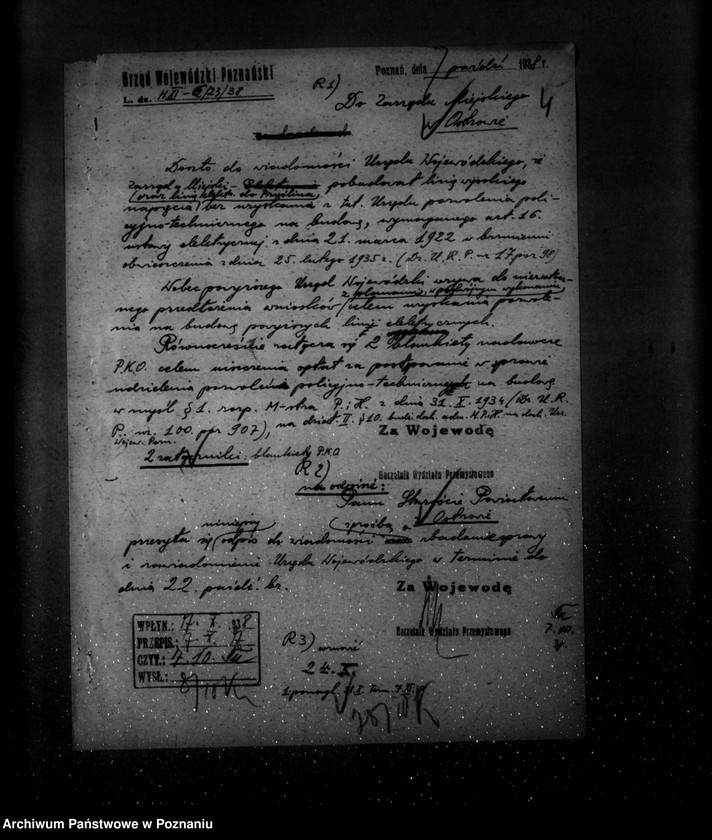 Urząd Wojewódzki Poznański
L. dz. H XI - 6/23/38
Poznań, dnia 7 paźdź 1938 r.
R 1)
Do Zarządu Miejskiego
w Ostrowie
Doszło do wiadomości Urzędu Wojewódzkiego, że
Zarząd Miejski pobudował linię wysokiego
(oraz linię elektr. do
napięcia) bez uzyskania z tut. Urzędu pozwolenia poli-
cyjno-technicznego na budowę, wymaganego art. 16.
ustawy elektrycznej z dnia 21. marca 1922 w brzmieniu
obwieszczenia z dnia 25. lutego 1935 r. (Dz. U. R. P. nr 17 poz 98)
Wobec powyższego Urząd Wojewódzki wzywa do niezwłocz-
z planami, w
nego przedłożenia wniosków celem uzyskania pozwole-
nia na budowę powyższych linij elektrycznych.
Równocześnie załącza się 2 blankiety nadawcze
P.K.O. celem uiszczenia opłat za postępowanie w sprawie
udzielenia pozwoleń policyjno-technicznych na budowę
w myśl § 1. rozp. M-stra P. i H. z dnia 31. X. 1934 (Dz. U. R.
P. nr. 100. poz 907), na dział II. § 10.
Za Wojewodę
2 załączniki: blankiety P.K.O
Naczelnik Wydziału Przemysłowego
R 2)
na odpisie:
Panu Staroście Powiatowemu
w Ostrowie
niniejszy z prośbą o
przesyła się odpis do wiadomości zbadanie sprawy
i zawiadomienie Urzędu Wojewódzkiego w terminie do
dnia 22. paźdź. br.
Za Wojewodę
Naczelnik Wydziału Przemysłowego
7.10.
WPŁYN.: 17. X. 938
PRZEPIS.: 7. X.
CZYT.: 7. 10.
WYSŁ.: 8/10
R 3) wznowić
24. X.